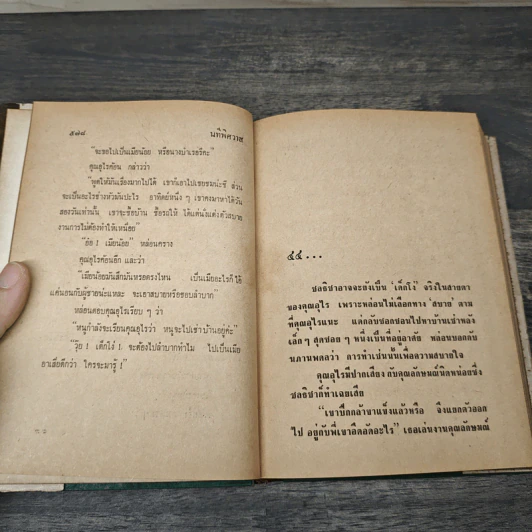 ๕๗๘
นทีพิศวาส
"จะขอไปเป็นเมียน้อย หรือนางบำเรอรึคะ"
คุณอุไรค้อน กล่าวว่า
"พูดให้มันเรื่องมากไปได้ เขาก็เอาไปเชยชมน่ะซี ส่วน
จะเป็นอะไรช่างหัวมันปะไร อาทิตย์หนึ่ง ๆ เขาคงมาหาได้วัน
สองวันเท่านั้น เขาจะซื้อบ้าน ซื้อรถให้ ได้แต่นั่งแต่งตัวสบาย
งานการไม่ต้องทำให้เหนื่อย"
"อ้อ ! เมียน้อย" หล่อนคราง
คุณอุไรค้อนอีก และว่า
"เมียน้อยมันสึกมันหรอตรงไหน เป็นเมียอะไรก็ได้
แค่นอนกับผู้ชายน่ะแหละ จะเอาสบายหรือชอบลำบาก"
หล่อนตอบคุณอุไรเรียบ ๆ ว่า
"หนูกำลังจะเรียนคุณอุไรว่า หนูจะไปเช่าบ้านอยู่ค่ะ"
"วุ้ย ! เด็กโง่ ! จะต้องไปลำบากทำไม ไปเป็นเมีย
อาเสี่ยดีกว่า ใครจะมารู้ !"
๕๕...
ชลธิชาอาจจะยังเป็น 'เด็กโง่' จริงในสายตา
ของคุณอุไร เพราะหล่อนไม่เลือกทาง 'สบาย' ตาม
ที่คุณอุไรแนะ แต่กลับซอกซอนไปหาบ้านเช่าหลัง
เล็ก ๆ สุดซอย ๆ หนึ่งเป็นที่อยู่อาศัย หล่อนบอกกับ
นภาพนดลว่า การทำเช่นนั้นเพื่อความสบายใจ
คุณอุไรมีปากเสียง กับคุณลักษมณ์นิดหน่อยซึ่ง
ชลธิชาก็ทำเฉยเสีย
"เขาปีกกล้าขาแข็งแล้วหรือ จึงแยกตัวออก
ไป อยู่กับพี่เขาอึดอัดอะไร" เธอเล่นงานคุณลักษมณ์